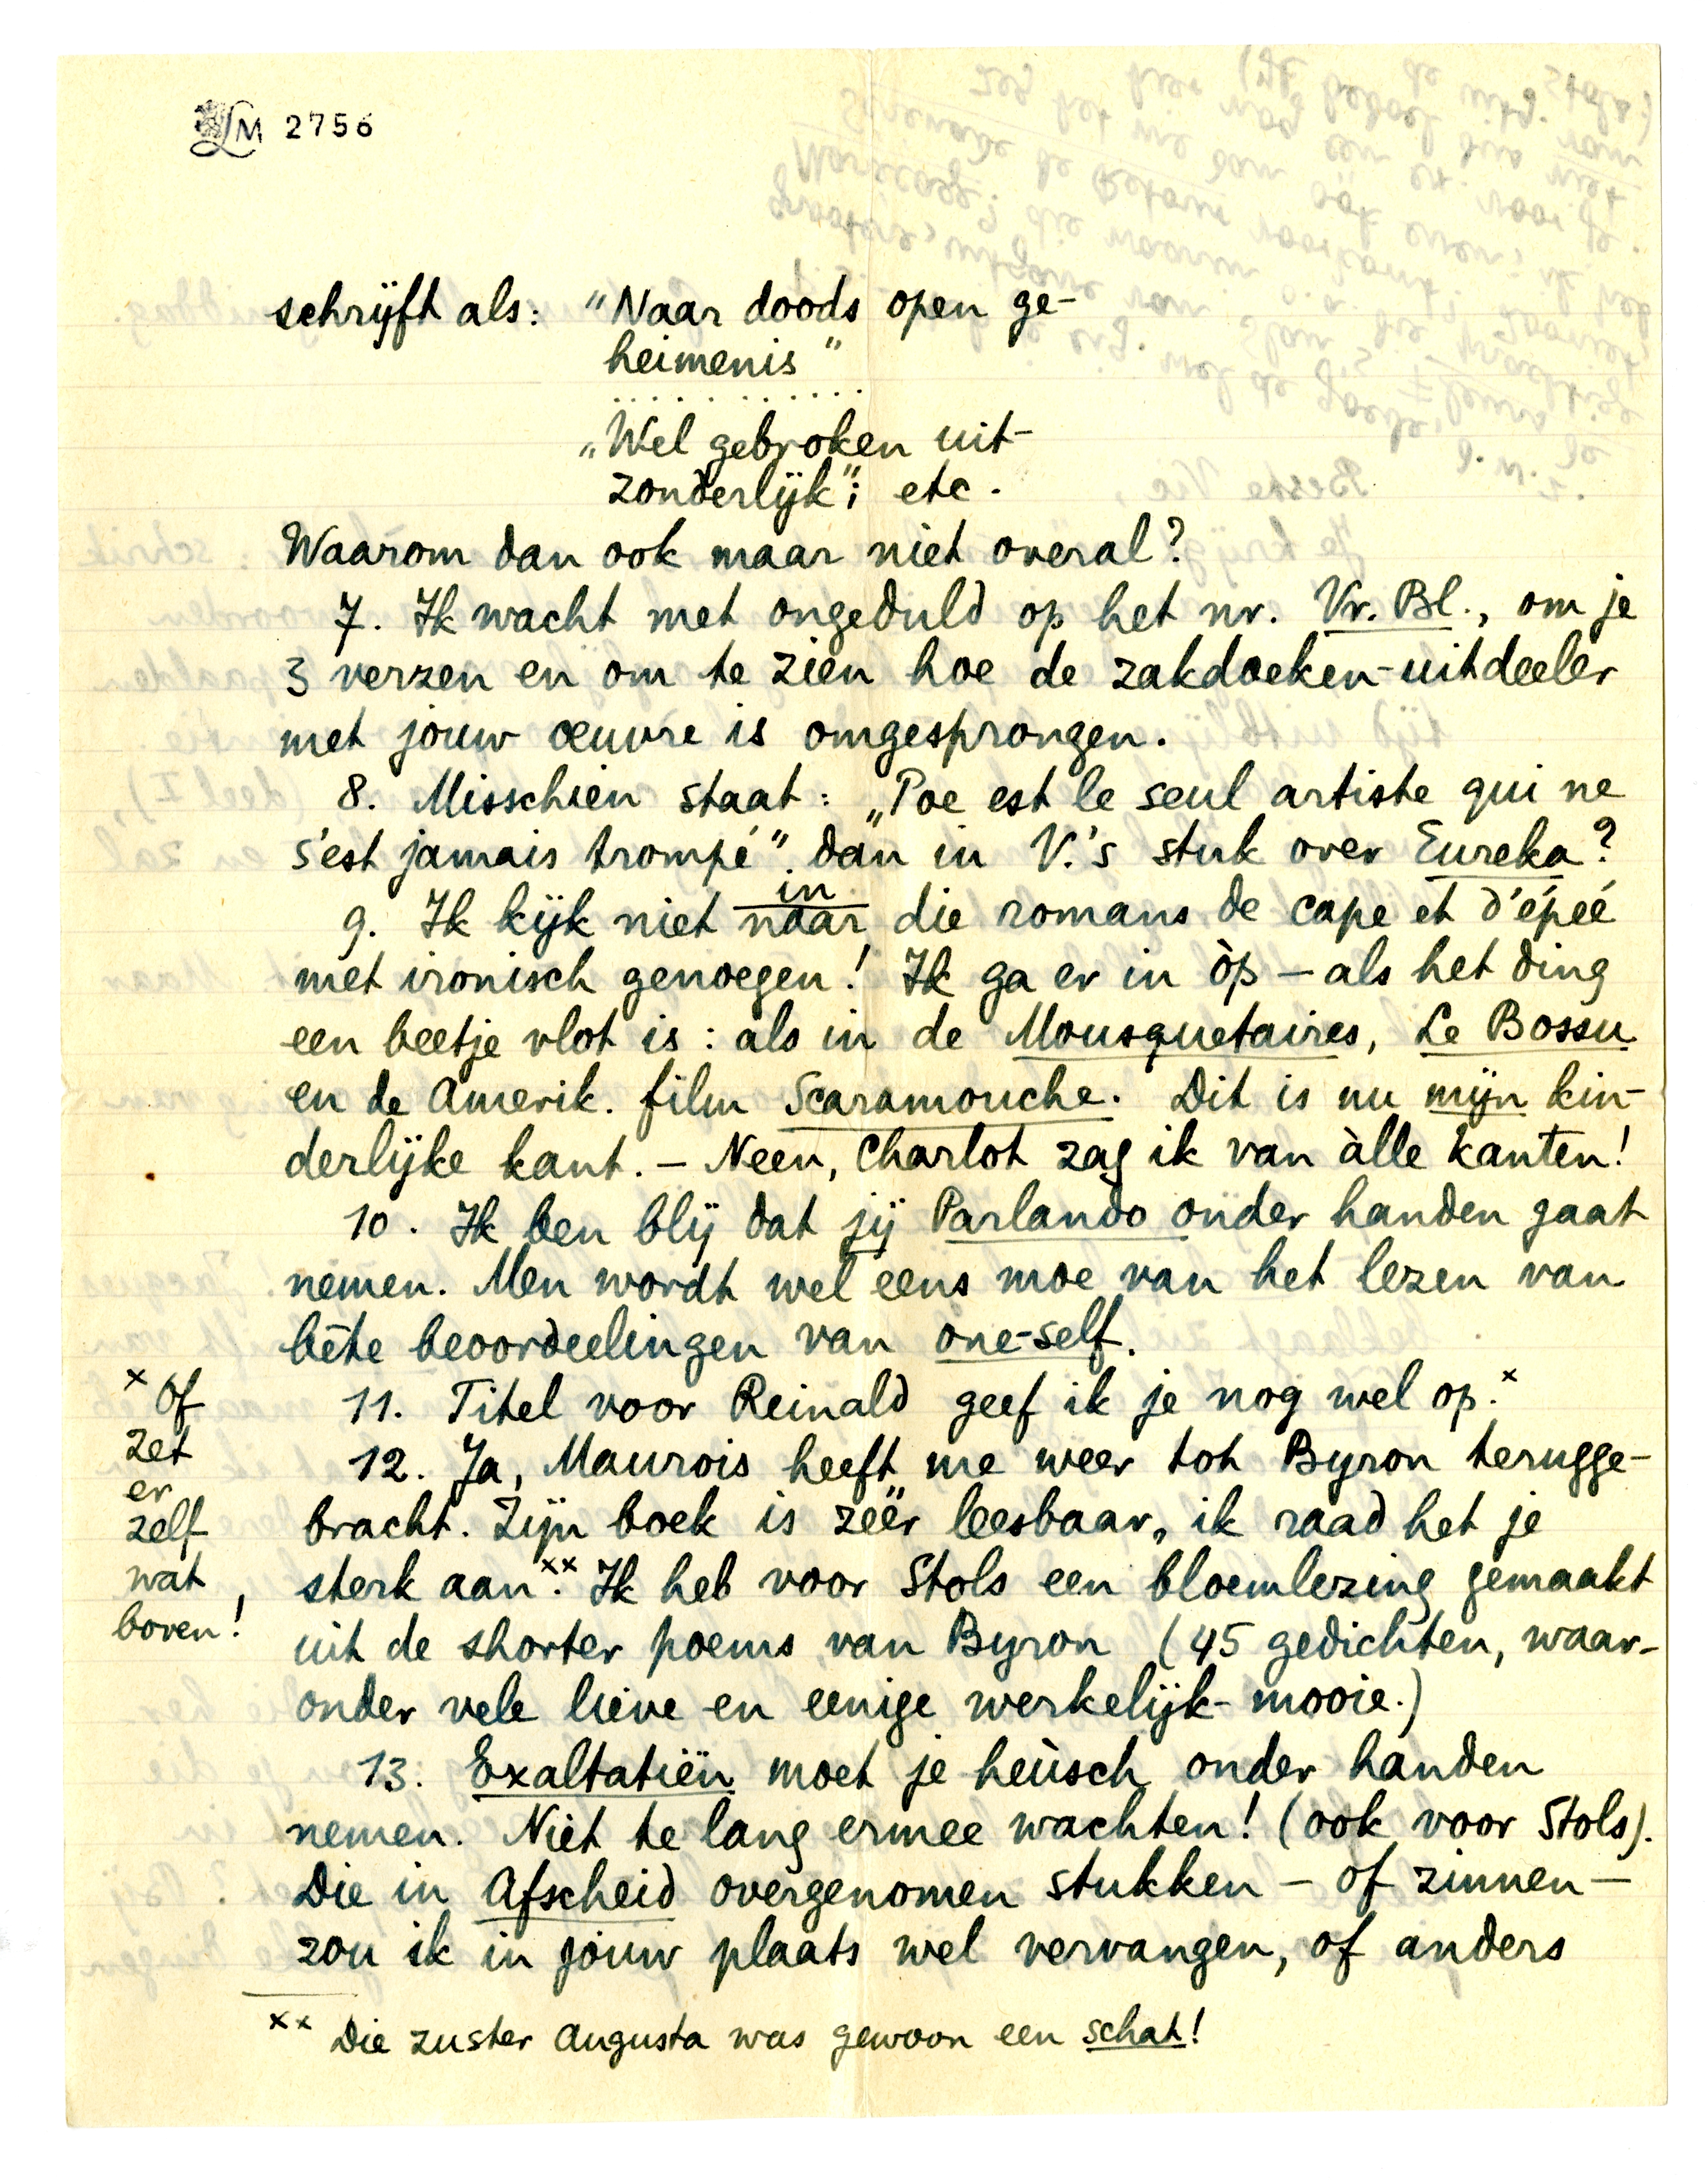 LM 2756
schrijft als: "Naar doods open ge-
heimenis"
. . . . . . . . . . .
„Wel gebroken uit-
zonderlijk"; etc.
Waarom dan ook maar niet overal?
7. Ik wacht met ongeduld op het nr. Vr. Bl., om je
3 verzen en om te zien hoe de zakdoeken-uitdeeler
met jouw œuvre is omgesprongen.
8. Misschien staat: „Poe est le seul artiste qui ne
s'est jamais trompé" dan in V.'s stuk over Eureka?
in
9. Ik kijk niet naar die romans de cape et d'épeé
met ironisch genoegen! Ik ga er in òp — als het ding
een beetje vlot is: als in de Mousquetaires, Le Bossu
en de Amerik. film Scaramouche. Dit is nu mijn kin-
derlijke kant. — Neen, Charlot zag ik van àlle kanten!
10. Ik ben blij dat jij Parlando onder handen gaat
nemen. Men wordt wel eens moe van het lezen van
bête beoordeelingen van one-self.
11. Titel voor Reinald geef ik je nog wel op.x
x Of
zet
er
zelf
wat
boven!
12. Ja, Maurois heeft me weer tot Byron terugge-
bracht. Zijn boek is zéér leesbaar, ik raad het je
sterk aan.xx Ik heb voor Stols een bloemlezing gemaakt
uit de shorter poems van Byron (45 gedichten, waar-
onder vele lieve en eenige werkelijk-mooie.)
13. Exaltatiën moet je heùsch onder handen
nemen. Niet te lang ermee wachten! (ook voor Stols).
Die in Afscheid overgenomen stukken — of zinnen —
zou ik in jouw plaats wel vervangen, of anders
xx Die zuster Augusta was gewoon een schat!